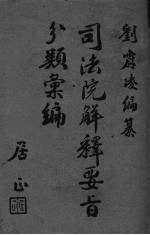 劉霨凌編纂
司法院解釋要旨
分類彙編
居正